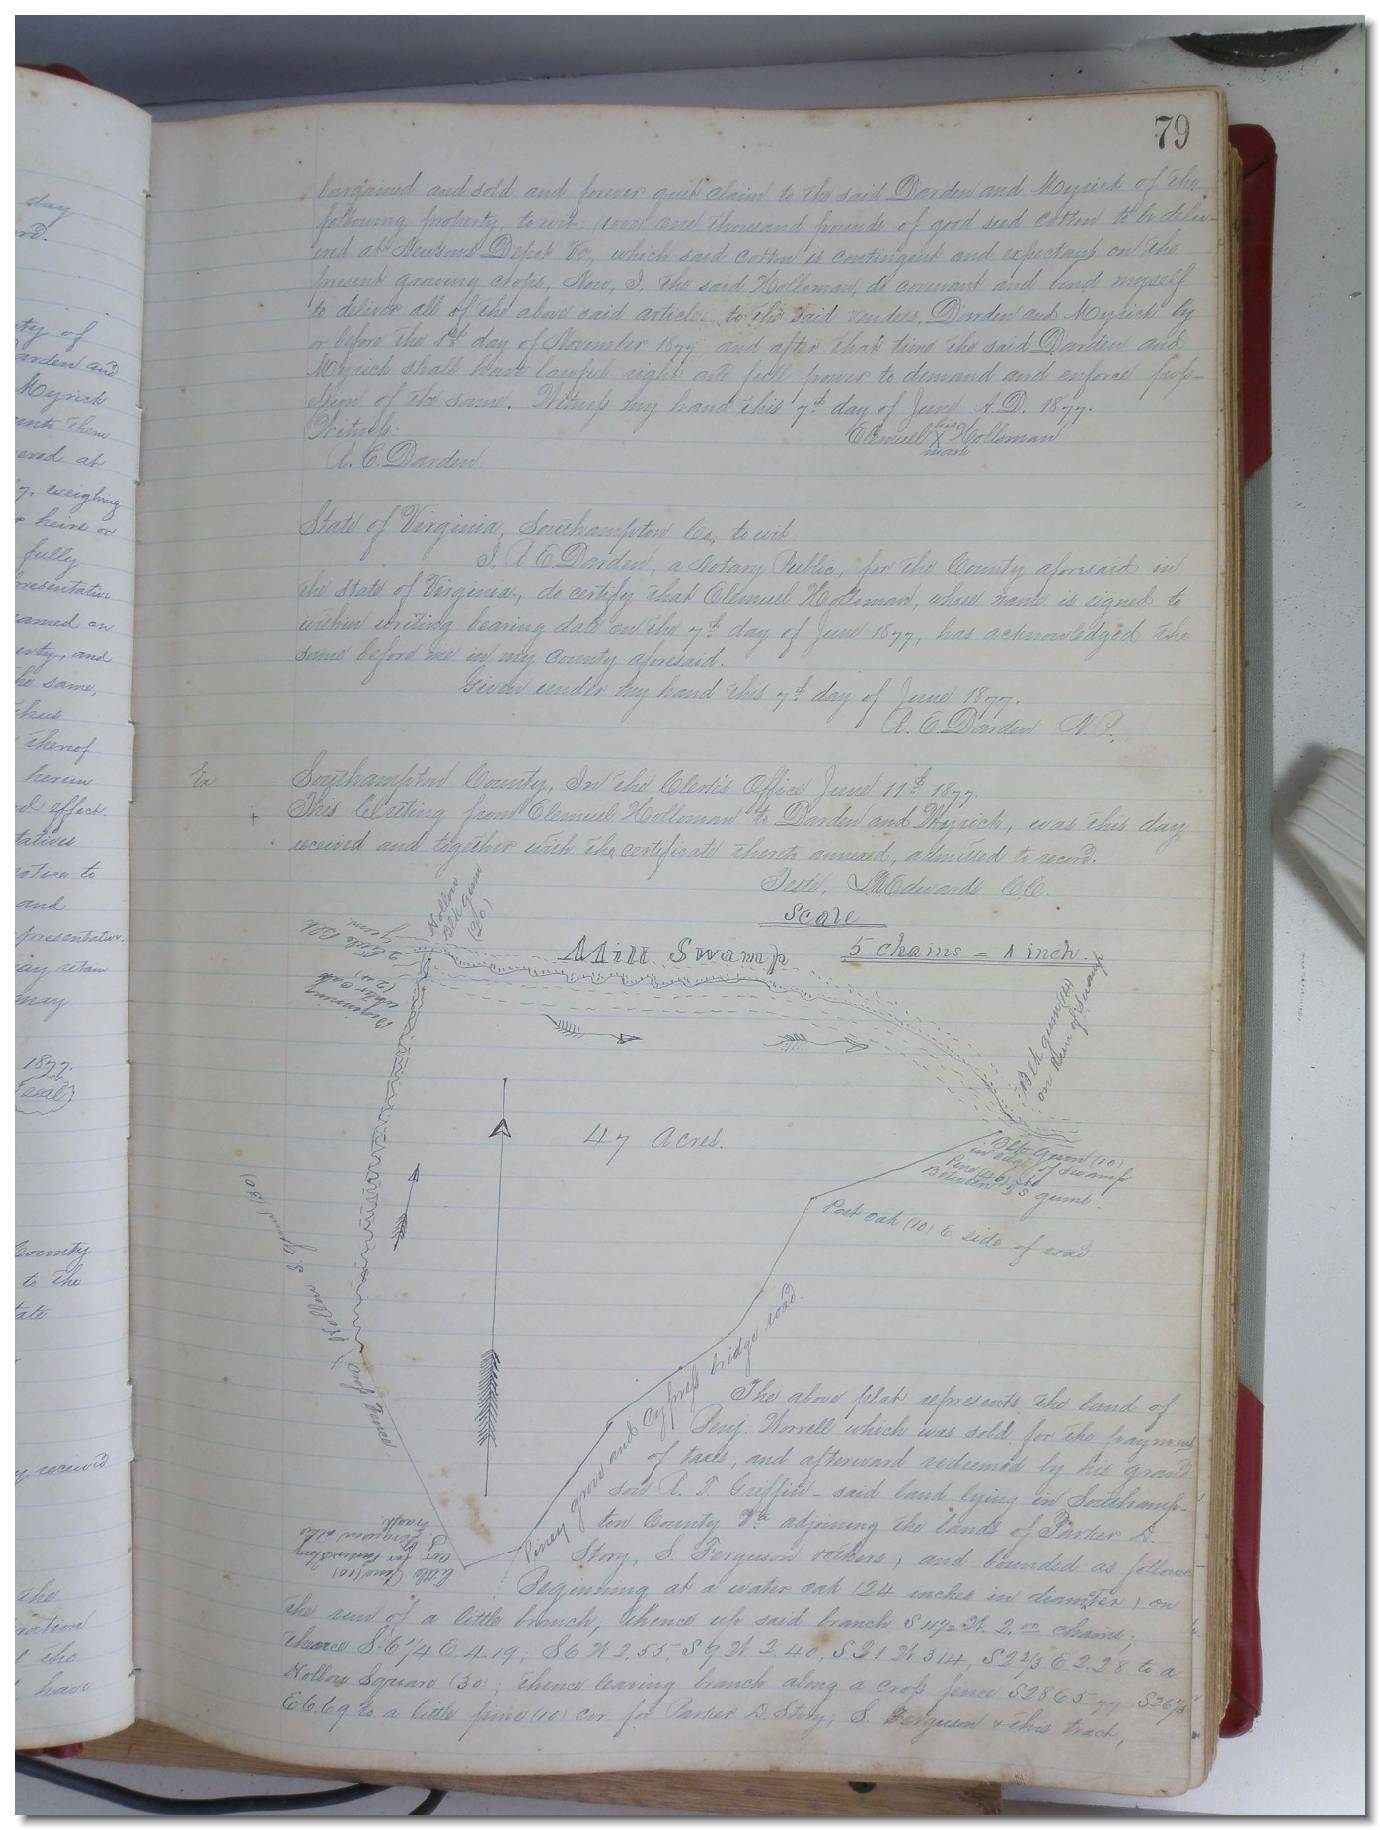 79
bargained and sold and forever quit claim to the said Darden and Myrick of the
following property to wit: (1000) one thousand pounds of good seed cotton to be deliv-
ered at Newsoms Depot Va, which said cotton is contingent and expectant on the
present growing crops. Now, I, the said Holloman, do covenant and bind myself
to deliver all of the above said articles to the said vendees, Darden and Myrick by
or before the 1st day of November 1877, and after that time the said Darden and
Myrick shall have lawful right and full power to demand and enforce poss-
ession of the same. Witness my hand this 7th day of June A.D. 1877.
Witness: Elemuel his X mark Holloman
A. E. Darden
State of Virginia, Southampton Co, to wit
I, A E Darden, a Notary Public, for the County aforesaid in
the State of Virginia, do certify that Elemuel Holloman, whose name is signed to
within writing bearing date on the 7th day of June 1877, has acknowledged the
same before me in my county aforesaid.
Given under my hand this 7th day of June 1877.
A. E. Darden N.P.
Ex Southampton County, In the Clerk's Office June 11th 1877.
This Writing from Elemuel Holloman to Darden and Myrick, was this day
received and together with the certificate thereto annexed, admitted to record.
Teste, Edwards C.C.
Scale
5 chains = 1 inch.
Mill Swamp
Hollow
Blk gum
(20)
2 little Blk
gum
Beginning
water oak
(24)
Blk gum
on Run of Swamp
47 Acres.
Blk Gum (10)
in edge of swamp
Pine (40)
Between 2 S gums.
Post oak (10) E side of road
Hollow S gum (30)
cross Fence
Piney grove and Cypress bridge road.
little Pine (10)
cor for Parker Story
S Ferguson & this
tract.
The above plat represents the land of
Benj. Worrell which was sold for the payment
of taxes, and afterward redeemed by his grand
son A. T. Griffin - said land lying in Southamp-
ton County Va adjoining the lands of Parker D.
Story, S. Ferguson & others, and bounded as follows
Beginning at a water oak (24 inches in diameter) on
the run of a little branch, thence up said branch S 11½ W. 2.00 chains;
thence S. 6 1/4 E. 4.19, S6 W 2.55, S 9 W 2.40, S 21 W 3.14, S 2 2/3 E 2.28 to a
Hollow Square (30); thence leaving branch along a cross fence S28 E 5.77
E 6.69 to a little pine (10) cor. for Parker D. Story, S. Ferguson & this tract,
day
ty of
arden and
Myrick
ered at
weighing
heirs or
fully
presentative
amed on
erty, and
he same,
thus
thereof
herein
effect.
tatives
and
presentative
may retain
may
1877.
Seal
County
to the
tate
received
the
the
have